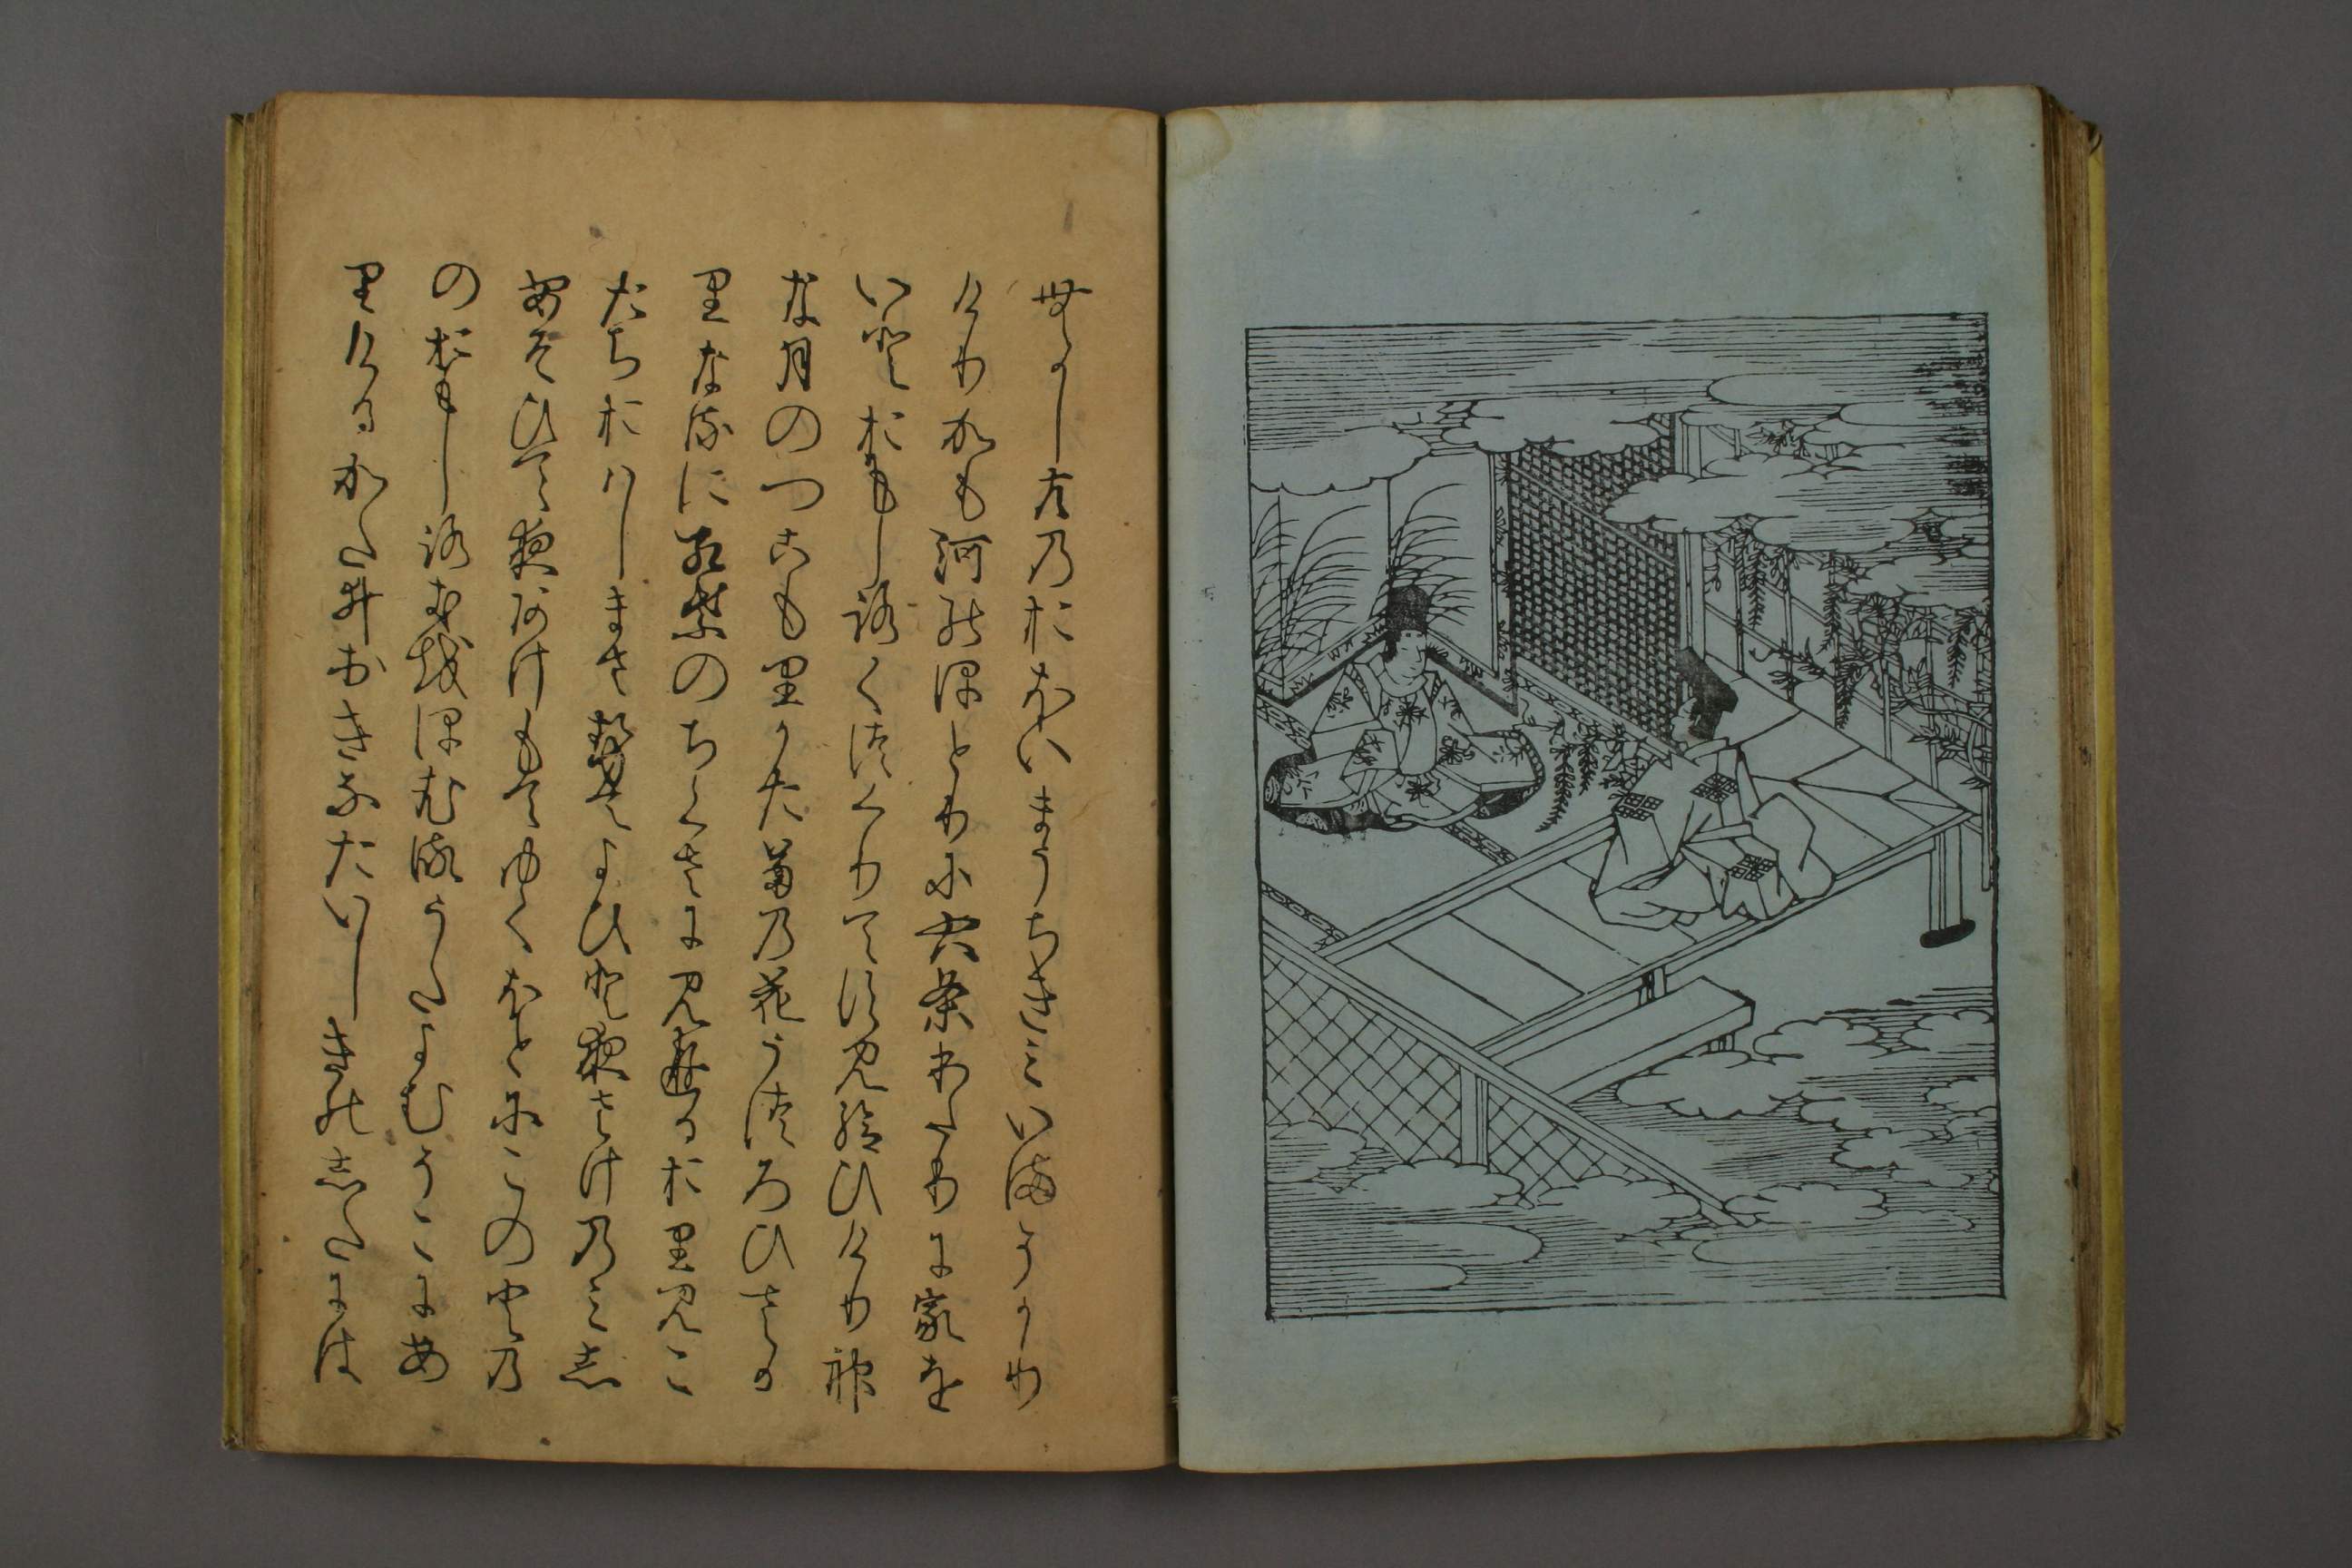 むかし左のおほいまうちきみいまそかり
けりかも河のほとりに六条わたりに家を
いとおもしろくつくりてすみ給ひけり神
な月のつこもりかた菊の花うつろひさか
りなるに紅葉のちくさに見ゆるおり見こ
たちおはしまさせてよひと夜さけのみし
あそひて夜あけもてゆくほとにこのとの
のおもしろきをほむるうたよむそこにあ
りけるかたゐおきなたいしきのしたには